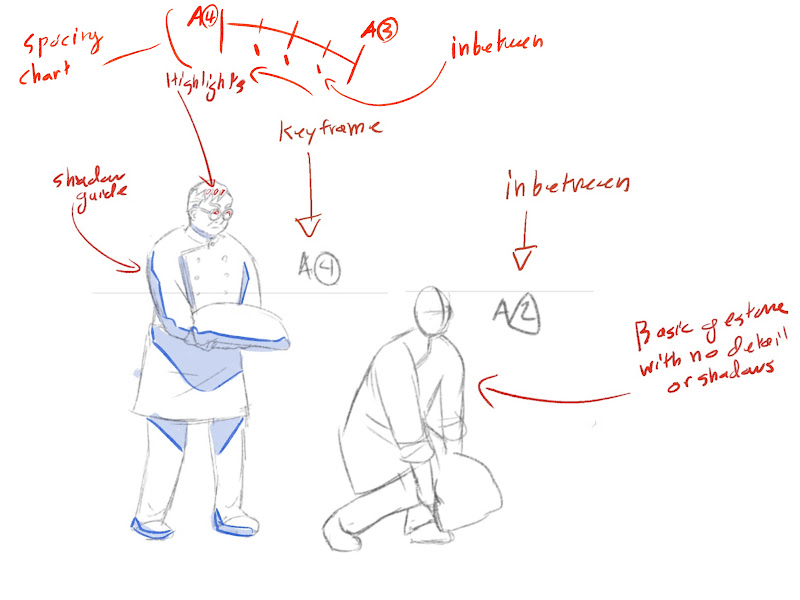 A4
A3
spacing
chart
inbetween
Highlights
keyframe
shadow
guide
inbetween
A4
A2
Basic gesture
with no detail
or shadows